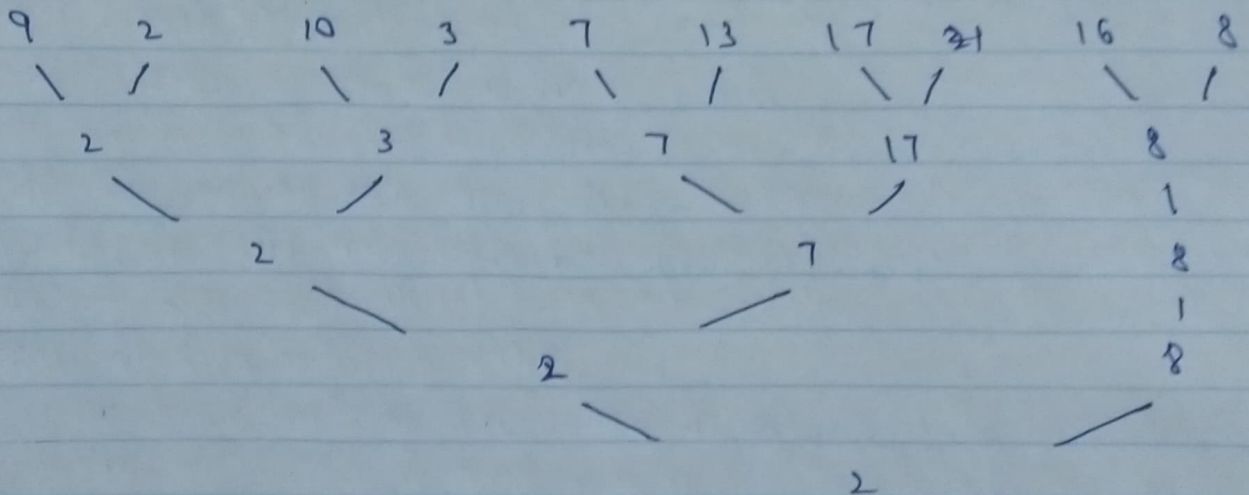 9 2 10 3 7 13 17 21 16 8
2 3 7 17 8
2 7 8
2 8
2